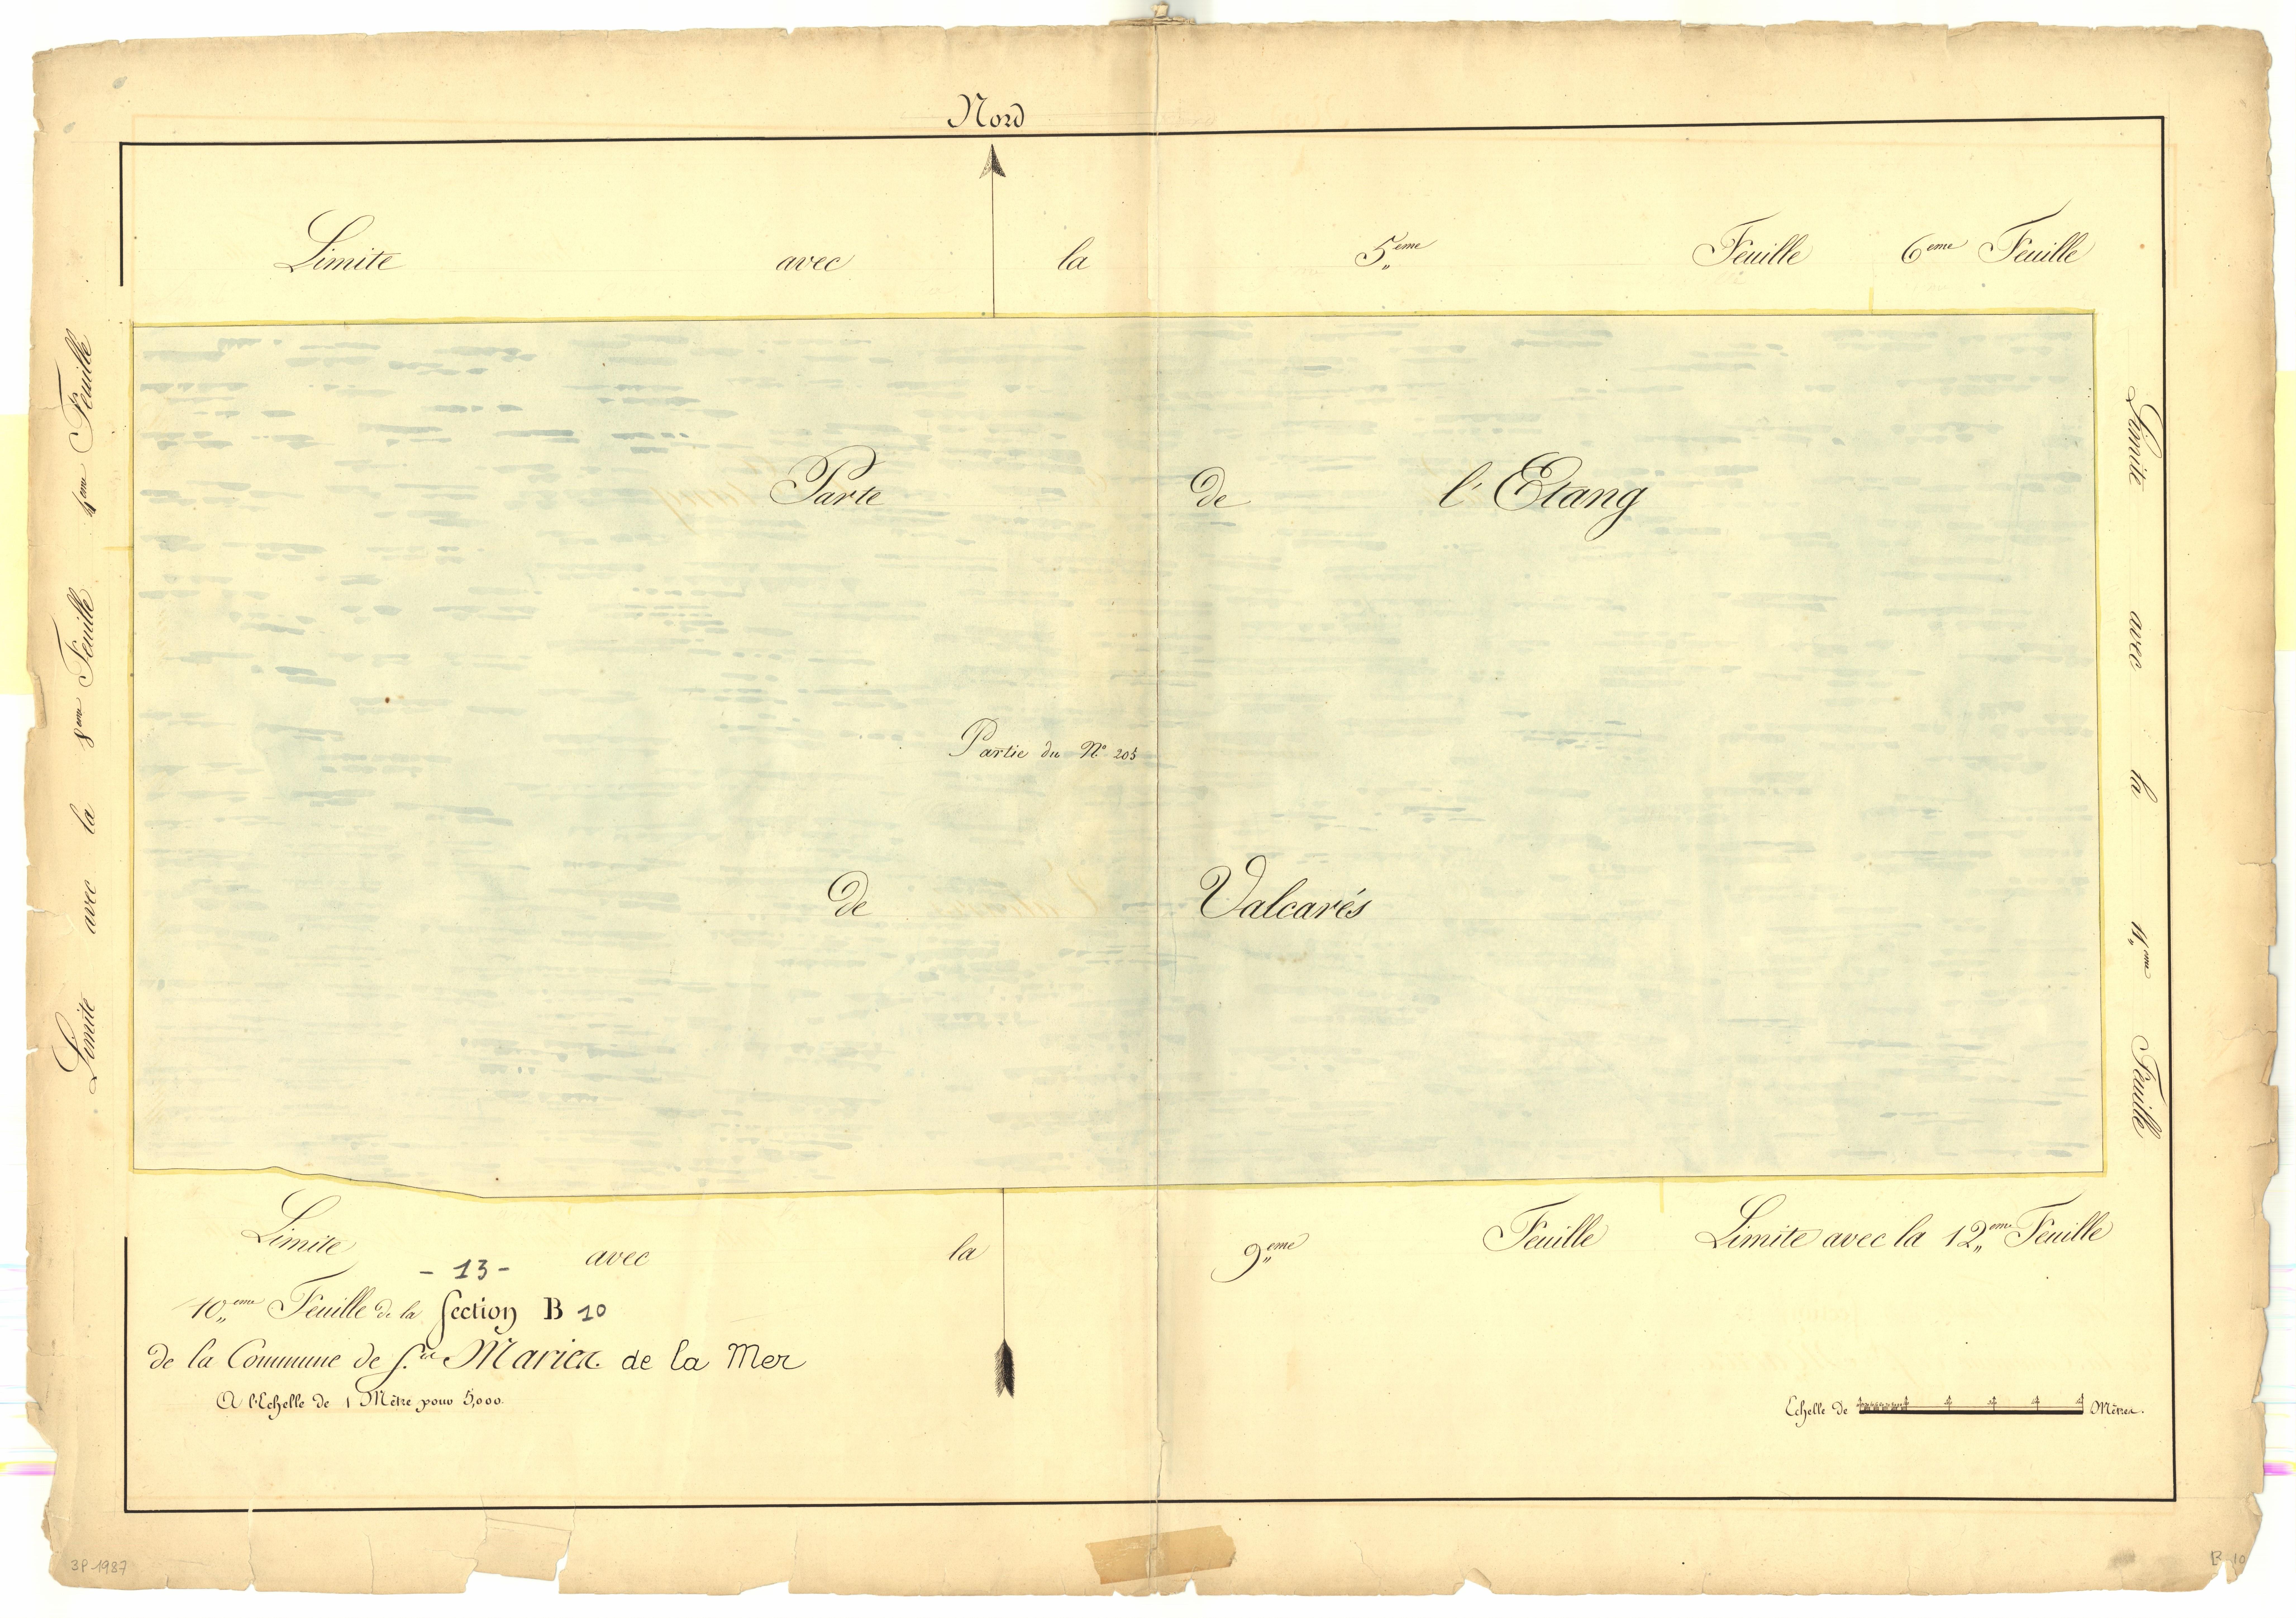 Nord
Limite avec la 5,,eme Feuille 6eme Feuille
Limite avec la 8eme Feuille 4eme Feuille
Limite avec la 11,,eme Feuille
Parte de l'Etang
Partie du N° 205
de Valcarés
Limite avec la 9,,eme Feuille Limite avec la 12,,eme Feuille
- 13 -
10,,eme Feuille de la Section B 10
de la Commune de Stes Maries de la Mer
A l'Echelle de 1 Mètre pour 5,000.
Echelle de Mètres.
3P 1987
B 10